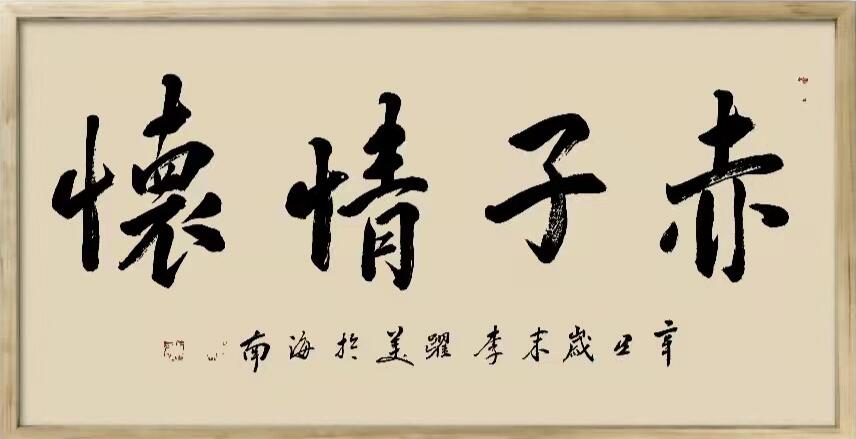 赤子情懷
辛丑歲末李躍美於海南